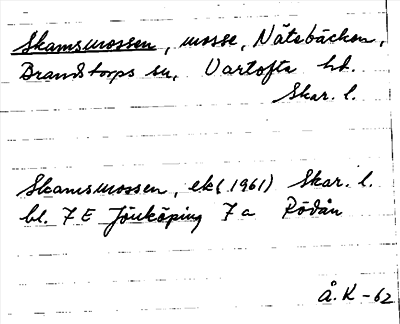 Skamsmossen, mosse, Nätabäcken,
Brandstorps sn, Vartofta hd.
Skar. l.
Skamsmossen, ek (1961) Skar. l.
bl. 7 E Jönköping 7 a Rödån
Å. K - 62